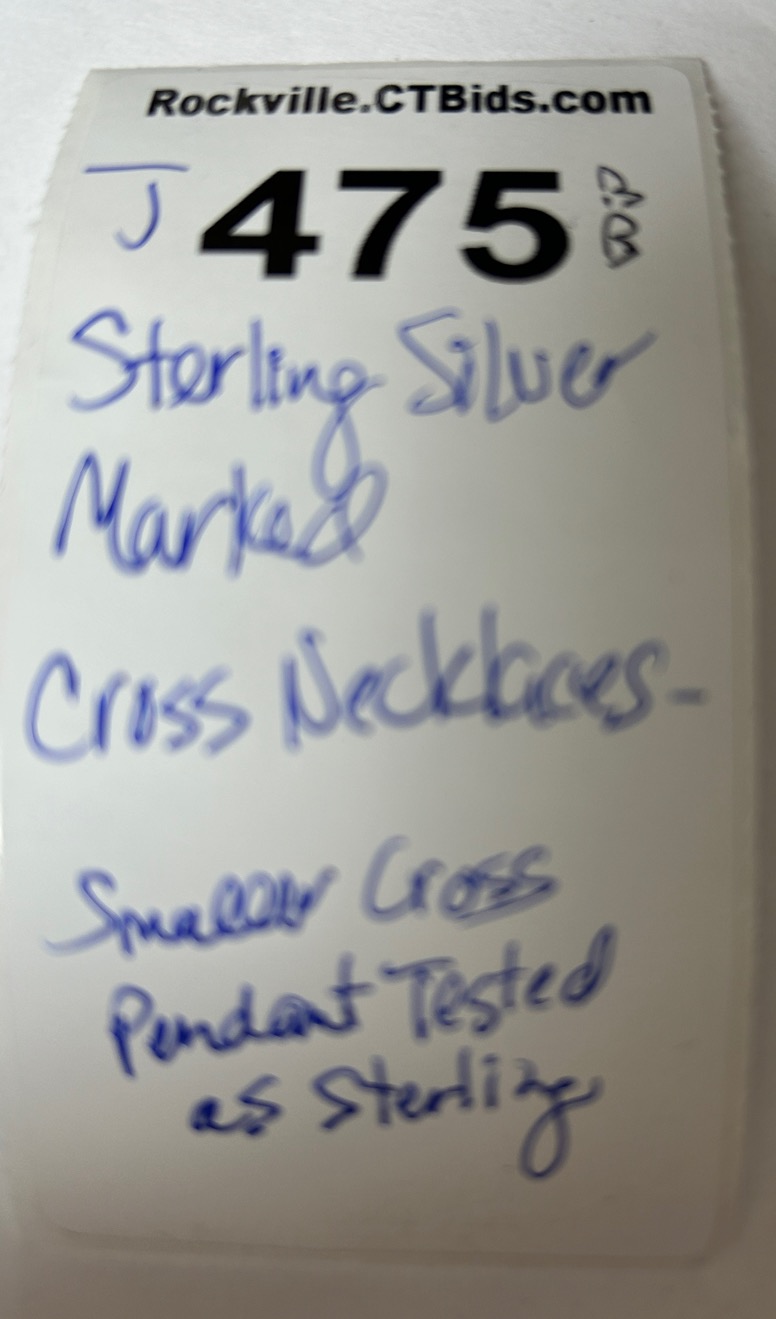 Rockville.CTBids.com
J 475
Sterling Silver
Marked
Cross Necklaces-
Smaller Cross
Pendant Tested
as Sterling